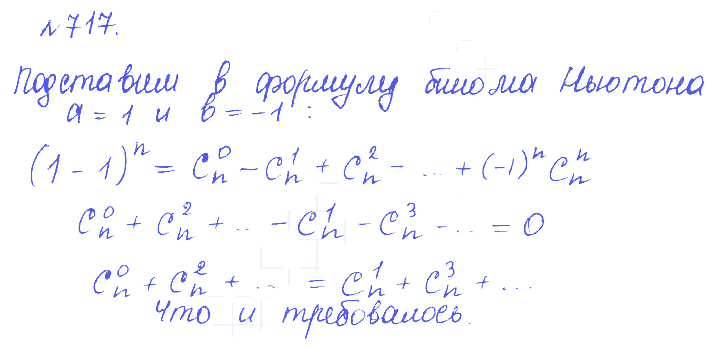 №717.
Подставим в формулу бинома Ньютона
a = 1 и b = -1 :
(1 - 1)^n = C_n^0 - C_n^1 + C_n^2 - ... + (-1)^n C_n^n
C_n^0 + C_n^2 + ... - C_n^1 - C_n^3 - ... = 0
C_n^0 + C_n^2 + ... = C_n^1 + C_n^3 + ...
Что и требовалось.